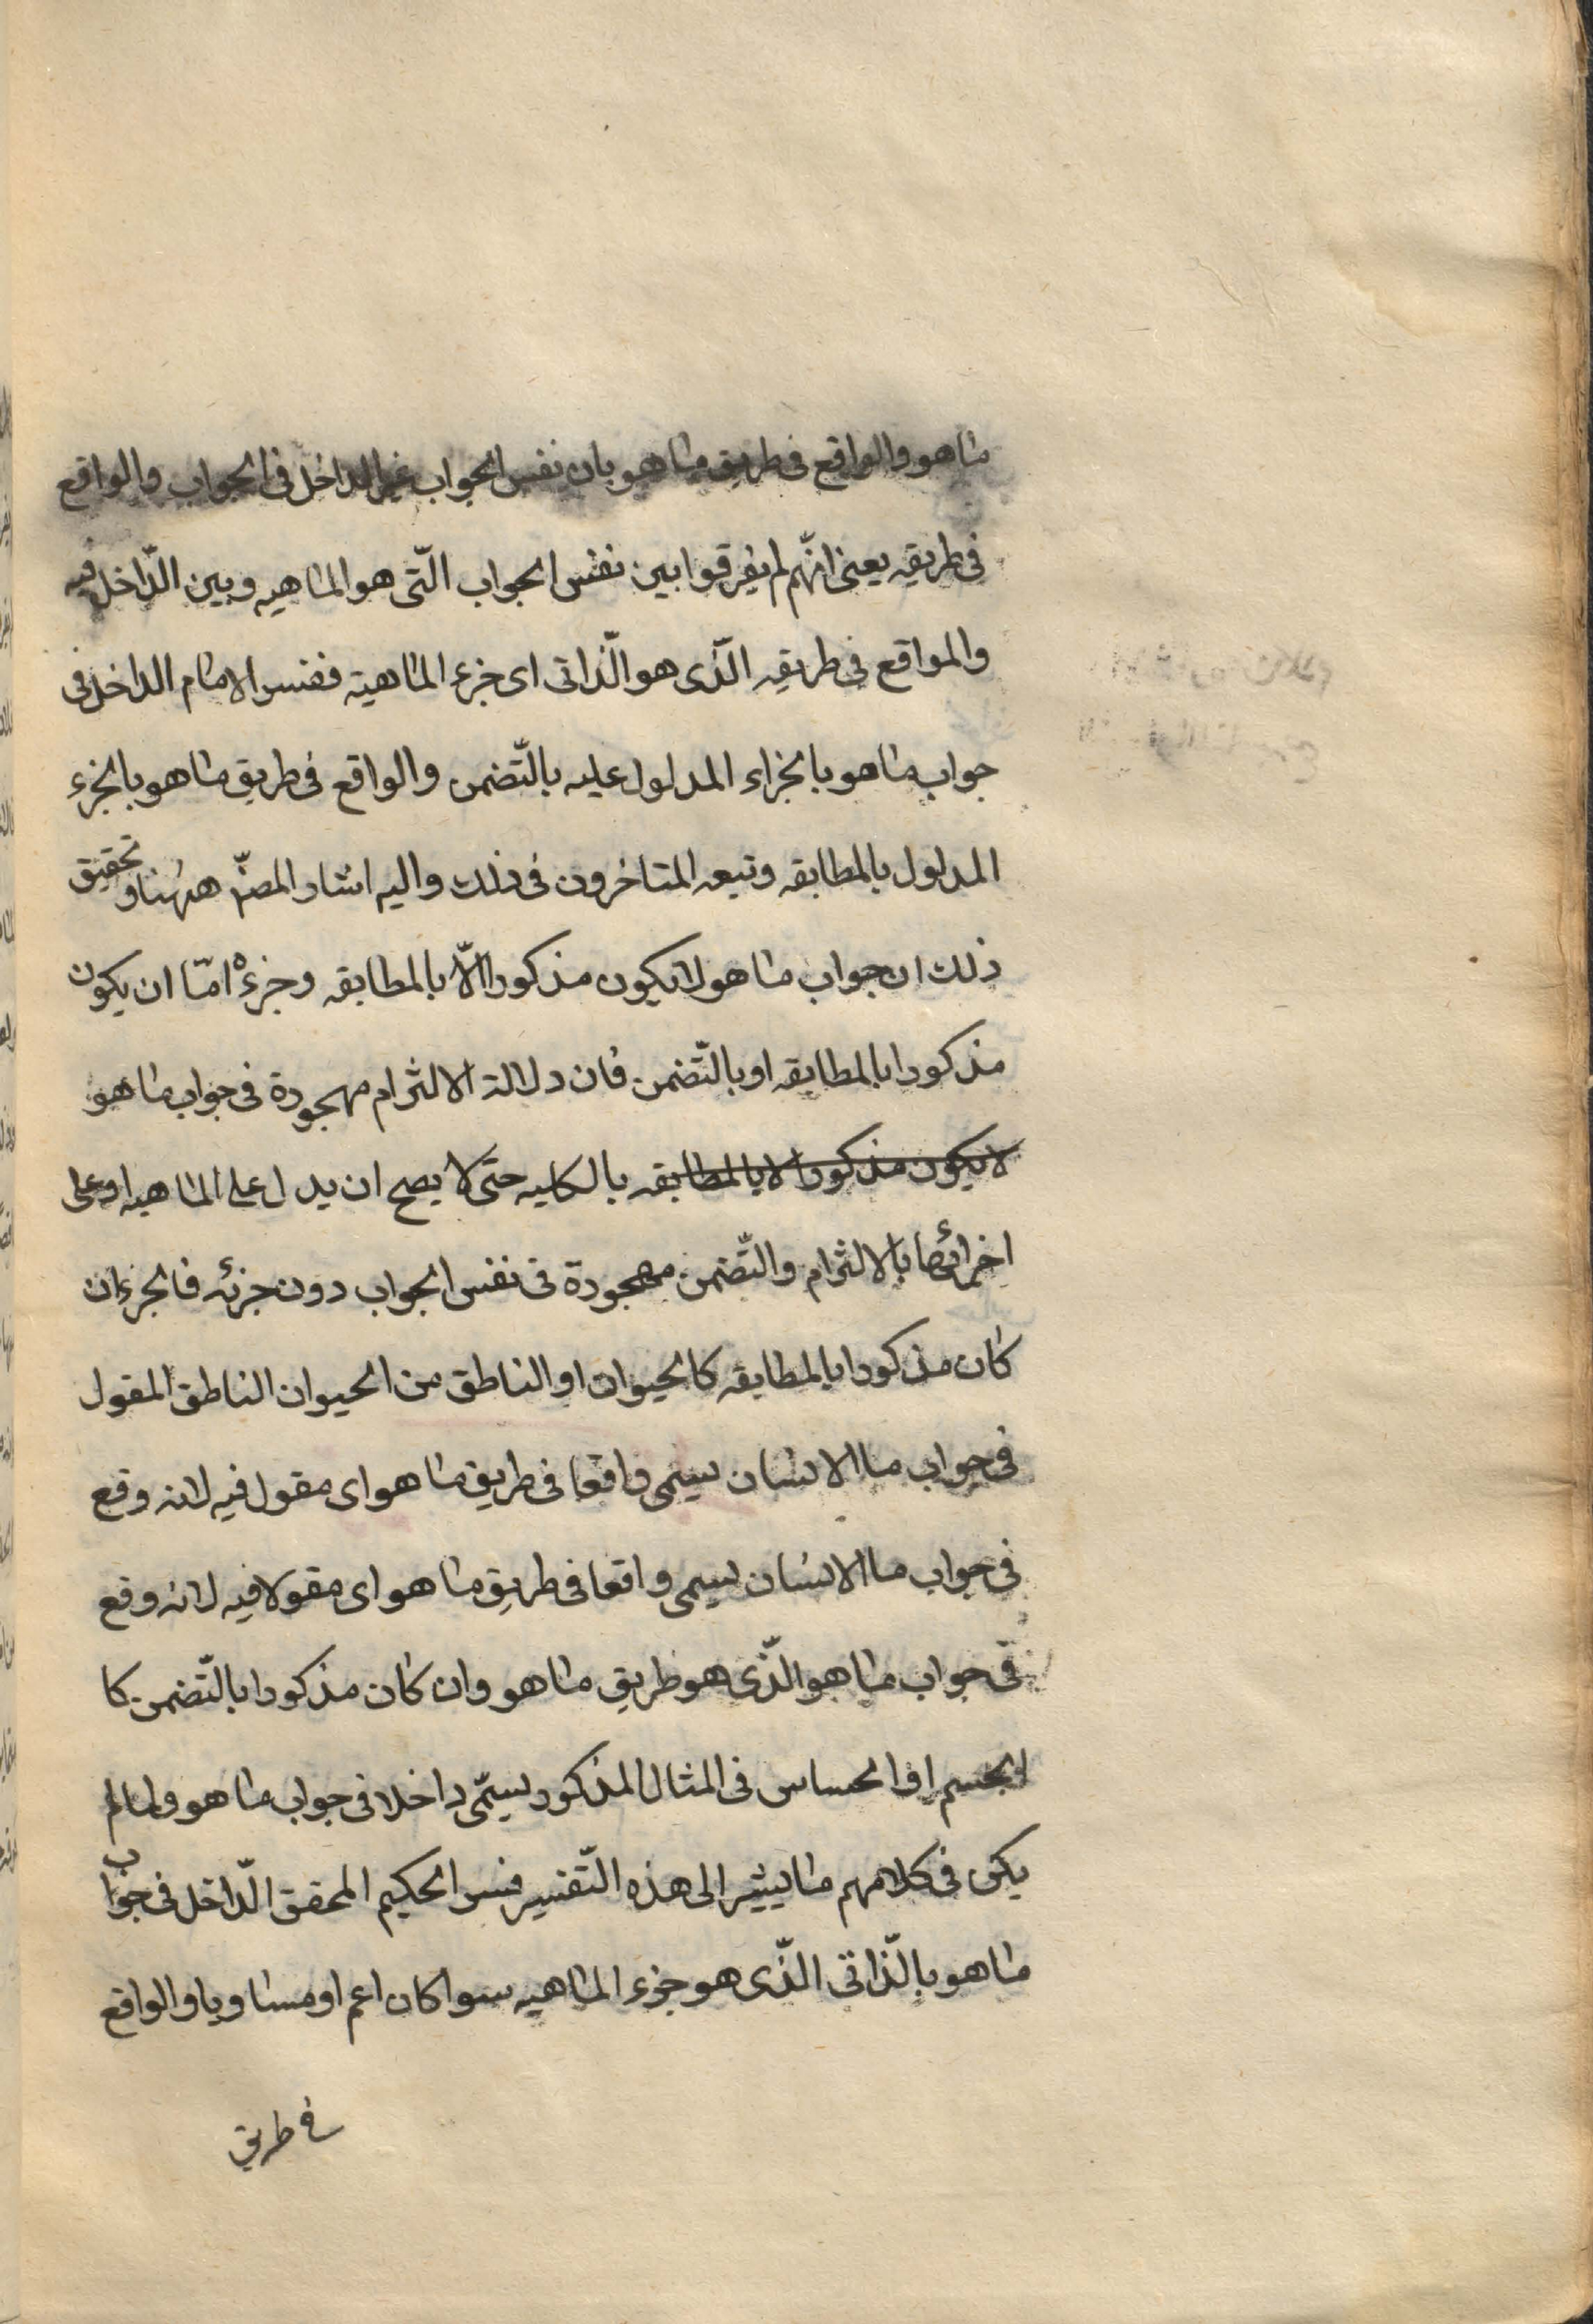 ماهو والواقع فى طريق ماهو بان نفس الجواب غير الداخل فى الجواب والواقع
فى طريقه يعنى انّهم لم يفرقوا بين نفس الجواب الّتى هو الماهيه وبين الدّاخل فيه
والمواقع فى طريقه الّذى هو الّذاتى اى جزء الماهيّه ففسر الامام الداخل فى
جواب ماهو بالجزاء المدلول عليه بالتّضمن والواقع فى طريق ماهو بالجزء
المدلول بالمطابقه وتبعه المتاخرون فى ذلك واليه اشار المصنّ ههنا وتحقيق
ذلك ان جواب ماهو لا يكون مذكورا الّا بالمطابقه وجزءه امّا ان يكون
مذكورا بالمطابقه او بالتّضمن فان دلالة الالتزام مهجورة فى جواب ماهو
لا يكون مذكورا الا بالمطابقه بالكليه حتى لا يصح ان يدل على الماهيه او على
اجزائها بالالتزام والتّضمن مهجورة فى نفس الجواب دون جزئه فالجزء ان
كان مذكورا بالمطابقه كالحيوان او الناطق من الحيوان الناطق المقول
فى جواب ما الانسان يسمى واقعا فى طريق ماهو اى مقول فيه لانه وقع
فى جواب ما الانسان يسمى واقعا فى طريق ماهو اى مقولا فيه لانه وقع
فى جواب ماهو الّذى هو طريق ماهو وان كان مذكورا بالتّضمن كا
الجسم او الحساس فى المثال المذكور يسمّى داخلا فى جواب ماهو ولما لم
يكن فى كلامهم ما يشير الى هذه التّفسير فسر الحكيم المحقق الدّاخل فى جواب
ماهو بالّذاتى الّذى هو جزء الماهيه سوا كان اعم او مساويا والواقع
فى طريق